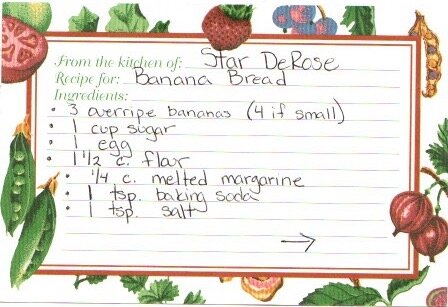 From the kitchen of: Star DeRose
Recipe for: Banana Bread
Ingredients:
• 3 overripe bananas (4 if small)
• 1 cup sugar
• 1 egg
• 1 1/2 c. flour
• 1/4 c. melted margarine
• 1 tsp. baking soda
• 1 tsp. salt
→